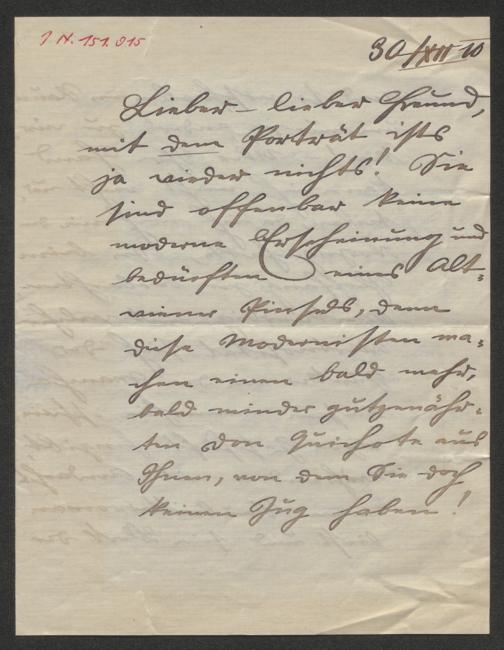 J. N. 151.915
30/XII 10
Lieber – lieber Freund,
mit dem Porträt ists
ja wieder nichts! Sie
sind offenbar keine
moderne Erscheinung und
bedürften eines Alt-
wiener Pinsels, denn
diese Modernisten ma-
chen einen bald mehr,
bald minder gutgenähr-
ten Don Quichote aus
Ihnen, von dem Sie doch
keinen Zug haben!